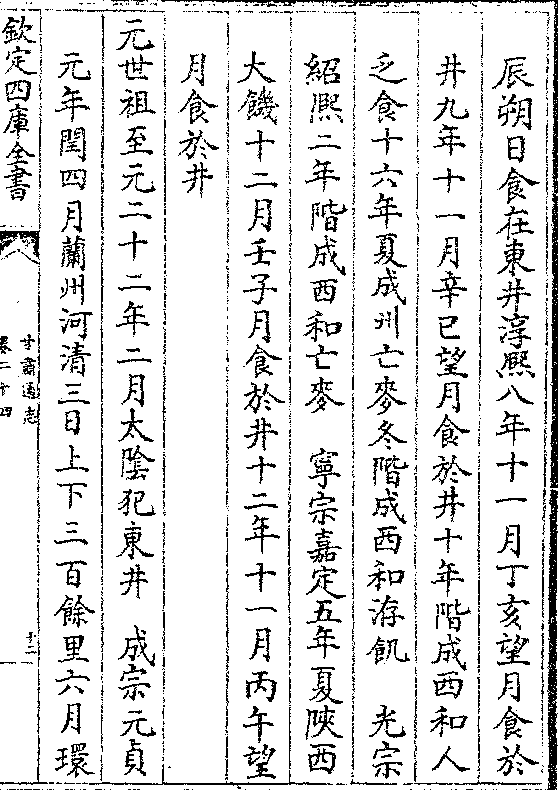 辰朔日食在東井淳熙八年十一月丁亥望月食於
井九年十一月辛巳望月食於井十年階成西和人
乏食十六年夏成州亡麥冬階成西和洊飢　光宗
紹熙二年階成西和亡麥　寧宗嘉定五年夏陜西
大饑十二月壬子月食於井十二年十一月丙午望
月食於井
元世祖至元二十二年二月太陰犯東井　成宗元貞
元年閏四月蘭州河清三日上下三百餘里六月環
欽定四庫全書
甘肅通志
卷二十四
十二